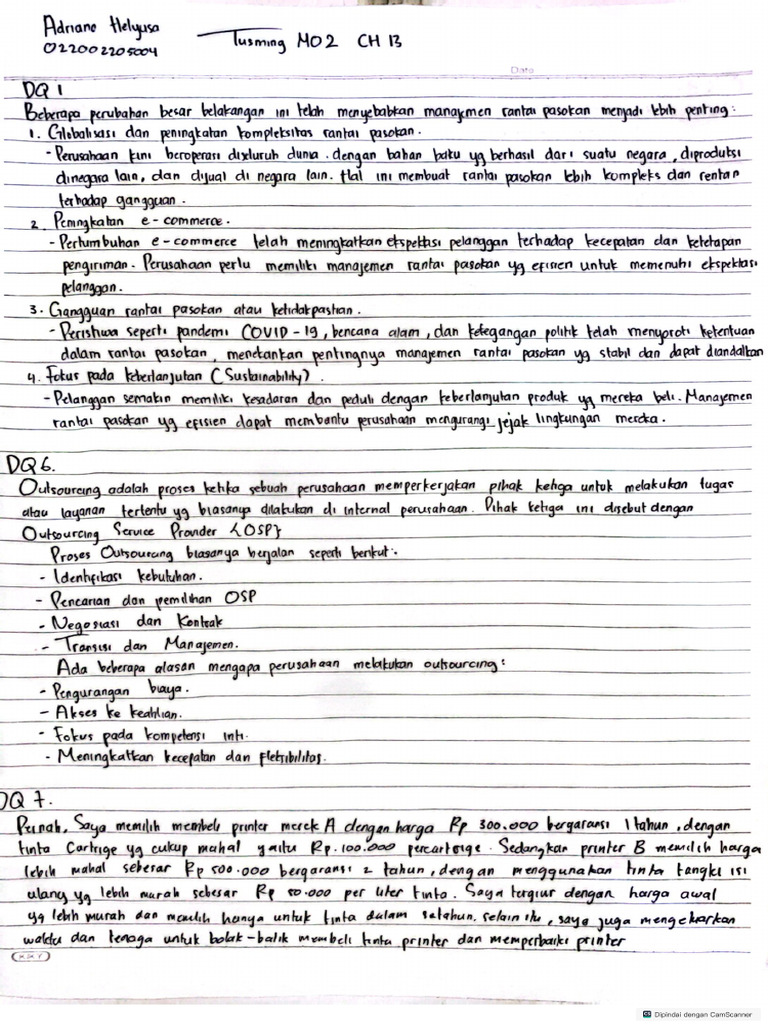 Adriano Helyusa
022002205004
Tusming MO2 CH 13
Date
DQ 1
Beberapa perubahan besar belakangan ini telah menyebabkan manajmen rantai pasokan menjadi lebih penting:
1. Globalisasi dan peningkatan kompleksitas rantai pasokan.
- Perusahaan kini beroperasi diseluruh dunia. dengan bahan baku yg berhasil dari suatu negara, diproduksi
dinegara lain, dan dijual di negara lain. Hal ini membuat rantai pasokan lebih kompleks dan rentan
terhadap gangguan.
2. Peningkatan e-commerce.
- Pertumbuhan e-commerce telah meningkatkan ekspektasi pelanggan terhadap kecepatan dan ketetapan
pengiriman. Perusahaan perlu memiliki manajemen rantai pasokan yg efisien untuk memenuhi ekspektasi
pelanggan.
3. Gangguan rantai pasokan atau ketidakpastian.
- Peristiwa seperti pandemi COVID-19, bencana alam, dan ketegangan politik telah menyoroti ketentuan
dalam rantai pasokan, menekankan pentingnya manajemen rantai pasokan yg stabil dan dapat diandalkan
4. Fokus pada keberlanjutan (Sustainability).
- Pelanggan semakin memiliki kesadaran dan peduli dengan keberlanjutan produk yg mereka beli. Manajemen
rantai pasokan yg efisien dapat membantu perusahaan mengurangi jejak lingkungan mereka.
DQ 6.
Outsourcing adalah proses ketika sebuah perusahaan memperkerjakan pihak ketiga untuk melakukan tugas
atau layanan tertentu yg biasanya dilakukan di internal perusahaan. Pihak ketiga ini disebut dengan
Outsourcing Service Provider {OSP}
Proses Outsourcing biasanya berjalan seperti berikut:
- Identifikasi kebutuhan.
- Pencarian dan pemilihan OSP
- Negosiasi dan Kontrak
- Transisi dan Manajemen.
Ada beberapa alasan mengapa perusahaan melakukan outsourcing:
- Pengurangan biaya.
- Akses ke keahlian.
- Fokus pada kompetensi inti.
- Meningkatkan kecepatan dan fleksibilitas.
DQ 7.
Pernah, Saya memilih membeli printer merek A dengan harga Rp 300.000 bergaransi 1 tahun, dengan
tinta Cartrige yg cukup mahal yaitu Rp. 100.000 percartrige. Sedangkan printer B memilih harga
lebih mahal sebesar Rp 500.000 bergaransi 2 tahun, dengan menggunakan tinta tangki isi
ulang yg lebih murah sebesar Rp 50.000 per liter tinta. Saya tergiur dengan harga awal
yg lebih murah dan memilih hanya untuk tinta dalam setahun. selain itu, saya juga mengeluarkan
waktu dan tenaga untuk bolak-balik membeli tinta printer dan memperbaiki printer
KKY
Dipindai dengan CamScanner